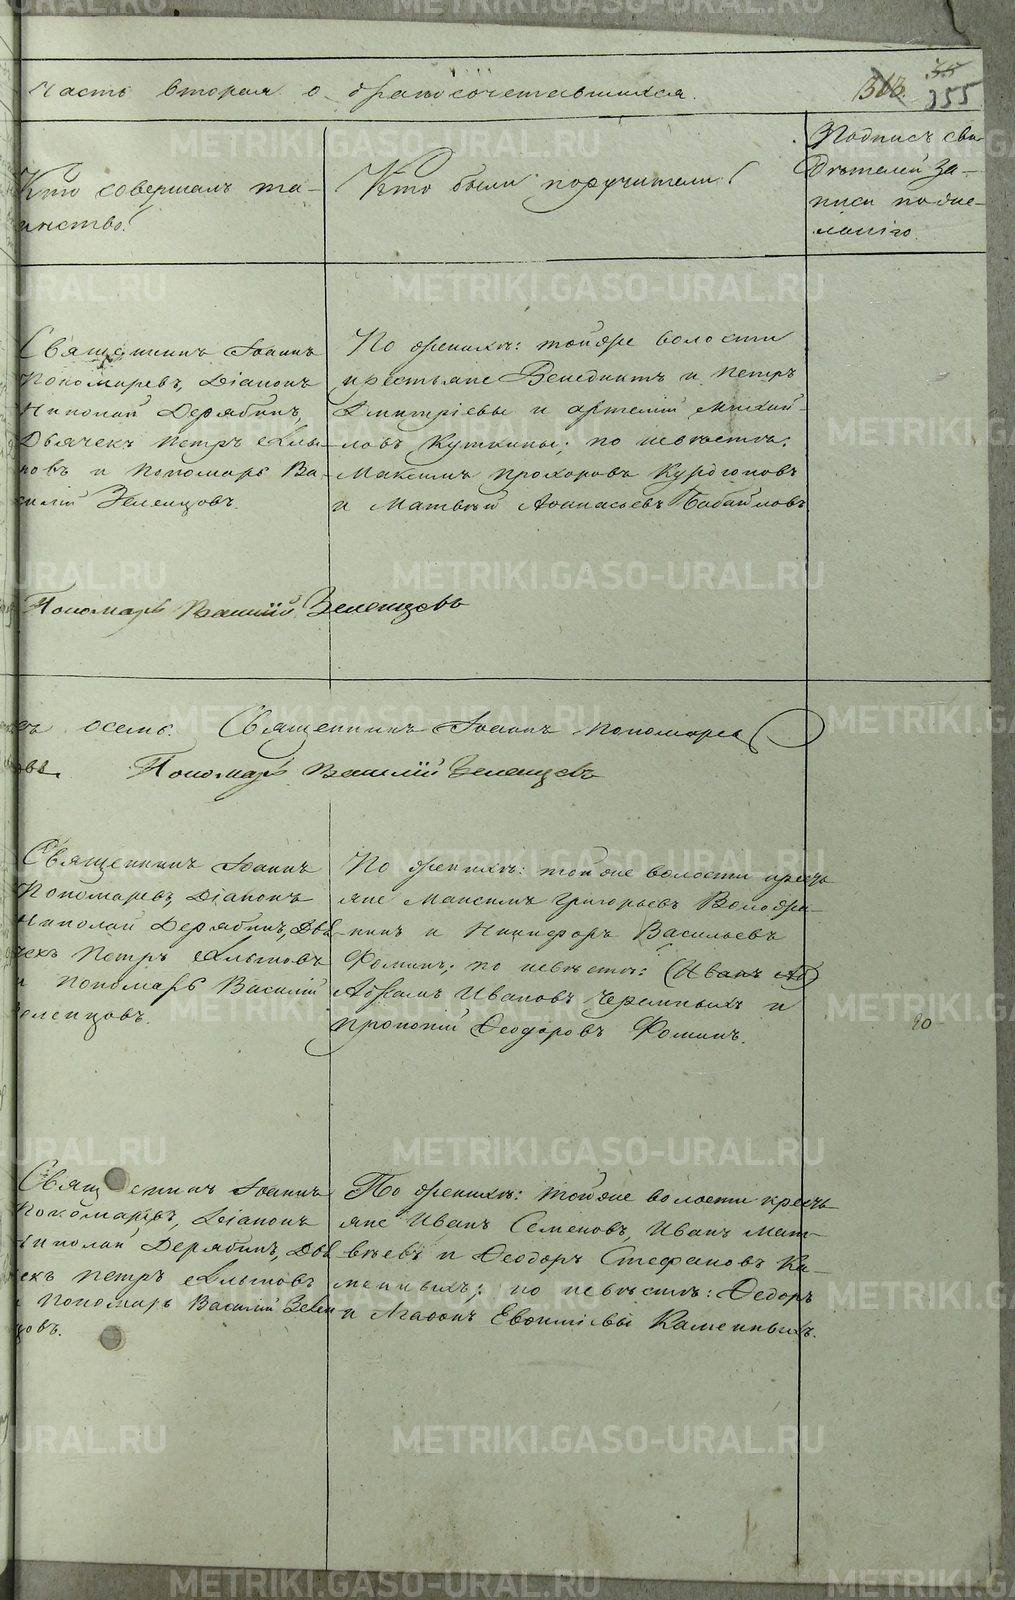 Часть вторая о бракосочетавшихся.
355
Кто совершалъ та-
инство?
Кто были поручители?
Подпись сви-
дѣтелей за-
писи по же-
ланію.
Священникъ Іоаннъ
Пономаревъ, Діаконъ
Николай Дерябинъ,
Дьячекъ Петръ
и Пономарь Ва-
силій Зеленцовъ.
По женихѣ: тойже волости
крестьяне Венедиктъ и Петръ
Дмитріевы и Артемій Михай-
ловъ Куткины; по невѣстѣ:
Максимъ Прохоровъ
и Матвѣй Аѳанасьевъ Бабайловъ
Пономарь Василій Зеленцовъ
осемь. Священникъ Іоаннъ Пономаревъ
Пономарь Василій Зеленцовъ
Священникъ Іоаннъ
Пономаревъ, Діаконъ
Николай Дерябинъ, Дья-
чекъ Петръ
и Пономарь Василій
Зеленцовъ.
По женихѣ: тойже волости кресть
яне Максимъ Григорьевъ Воложа-
нинъ и Никифоръ Васильевъ
Фоминъ; по невѣстѣ: (Иванъ Аб)
Абрамъ Ивановъ Черемныхъ и
Прокопій Ѳеодоровъ Фоминъ.
20
Священникъ Іоаннъ
Пономаревъ, Діаконъ
Николай Дерябинъ, Дья
чекъ Петръ
и Пономарь Василій Зелен
цовъ.
По женихѣ: тойже волости кресть
яне Иванъ Семеновъ, Иванъ Мат-
вѣевъ и Ѳеодоръ Стефановъ Ка-
менныхъ; по невѣстѣ: Ѳедоръ
и Агафонъ Евѳиміевы Каменныхъ.
METRIKI.GASO-URAL.RU